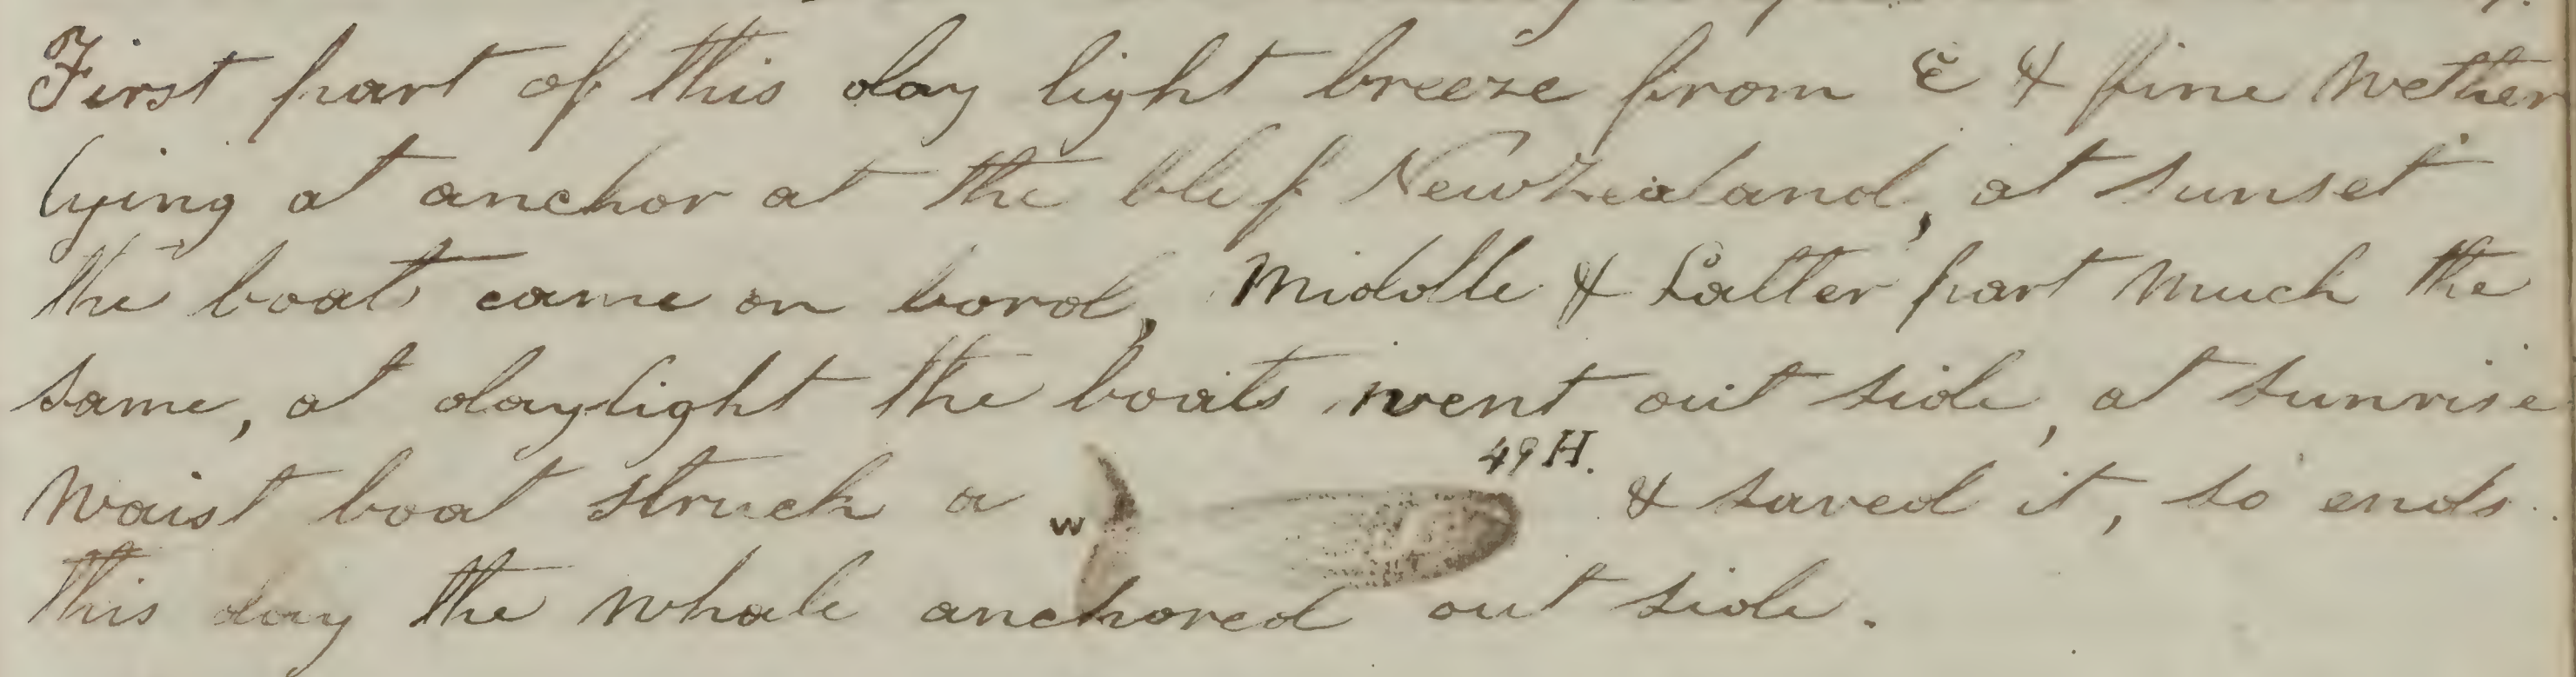 First part of this day light breeze from E & fine wether
lying at anchor at the blef NewZealand, at sunset
the boats came on bord, Middle & Latter part much the
same, at daylight the boats went out side, at sunrise
waist boat struck a W 49 H. & saved it, so ends
this day the whale anchored out side.